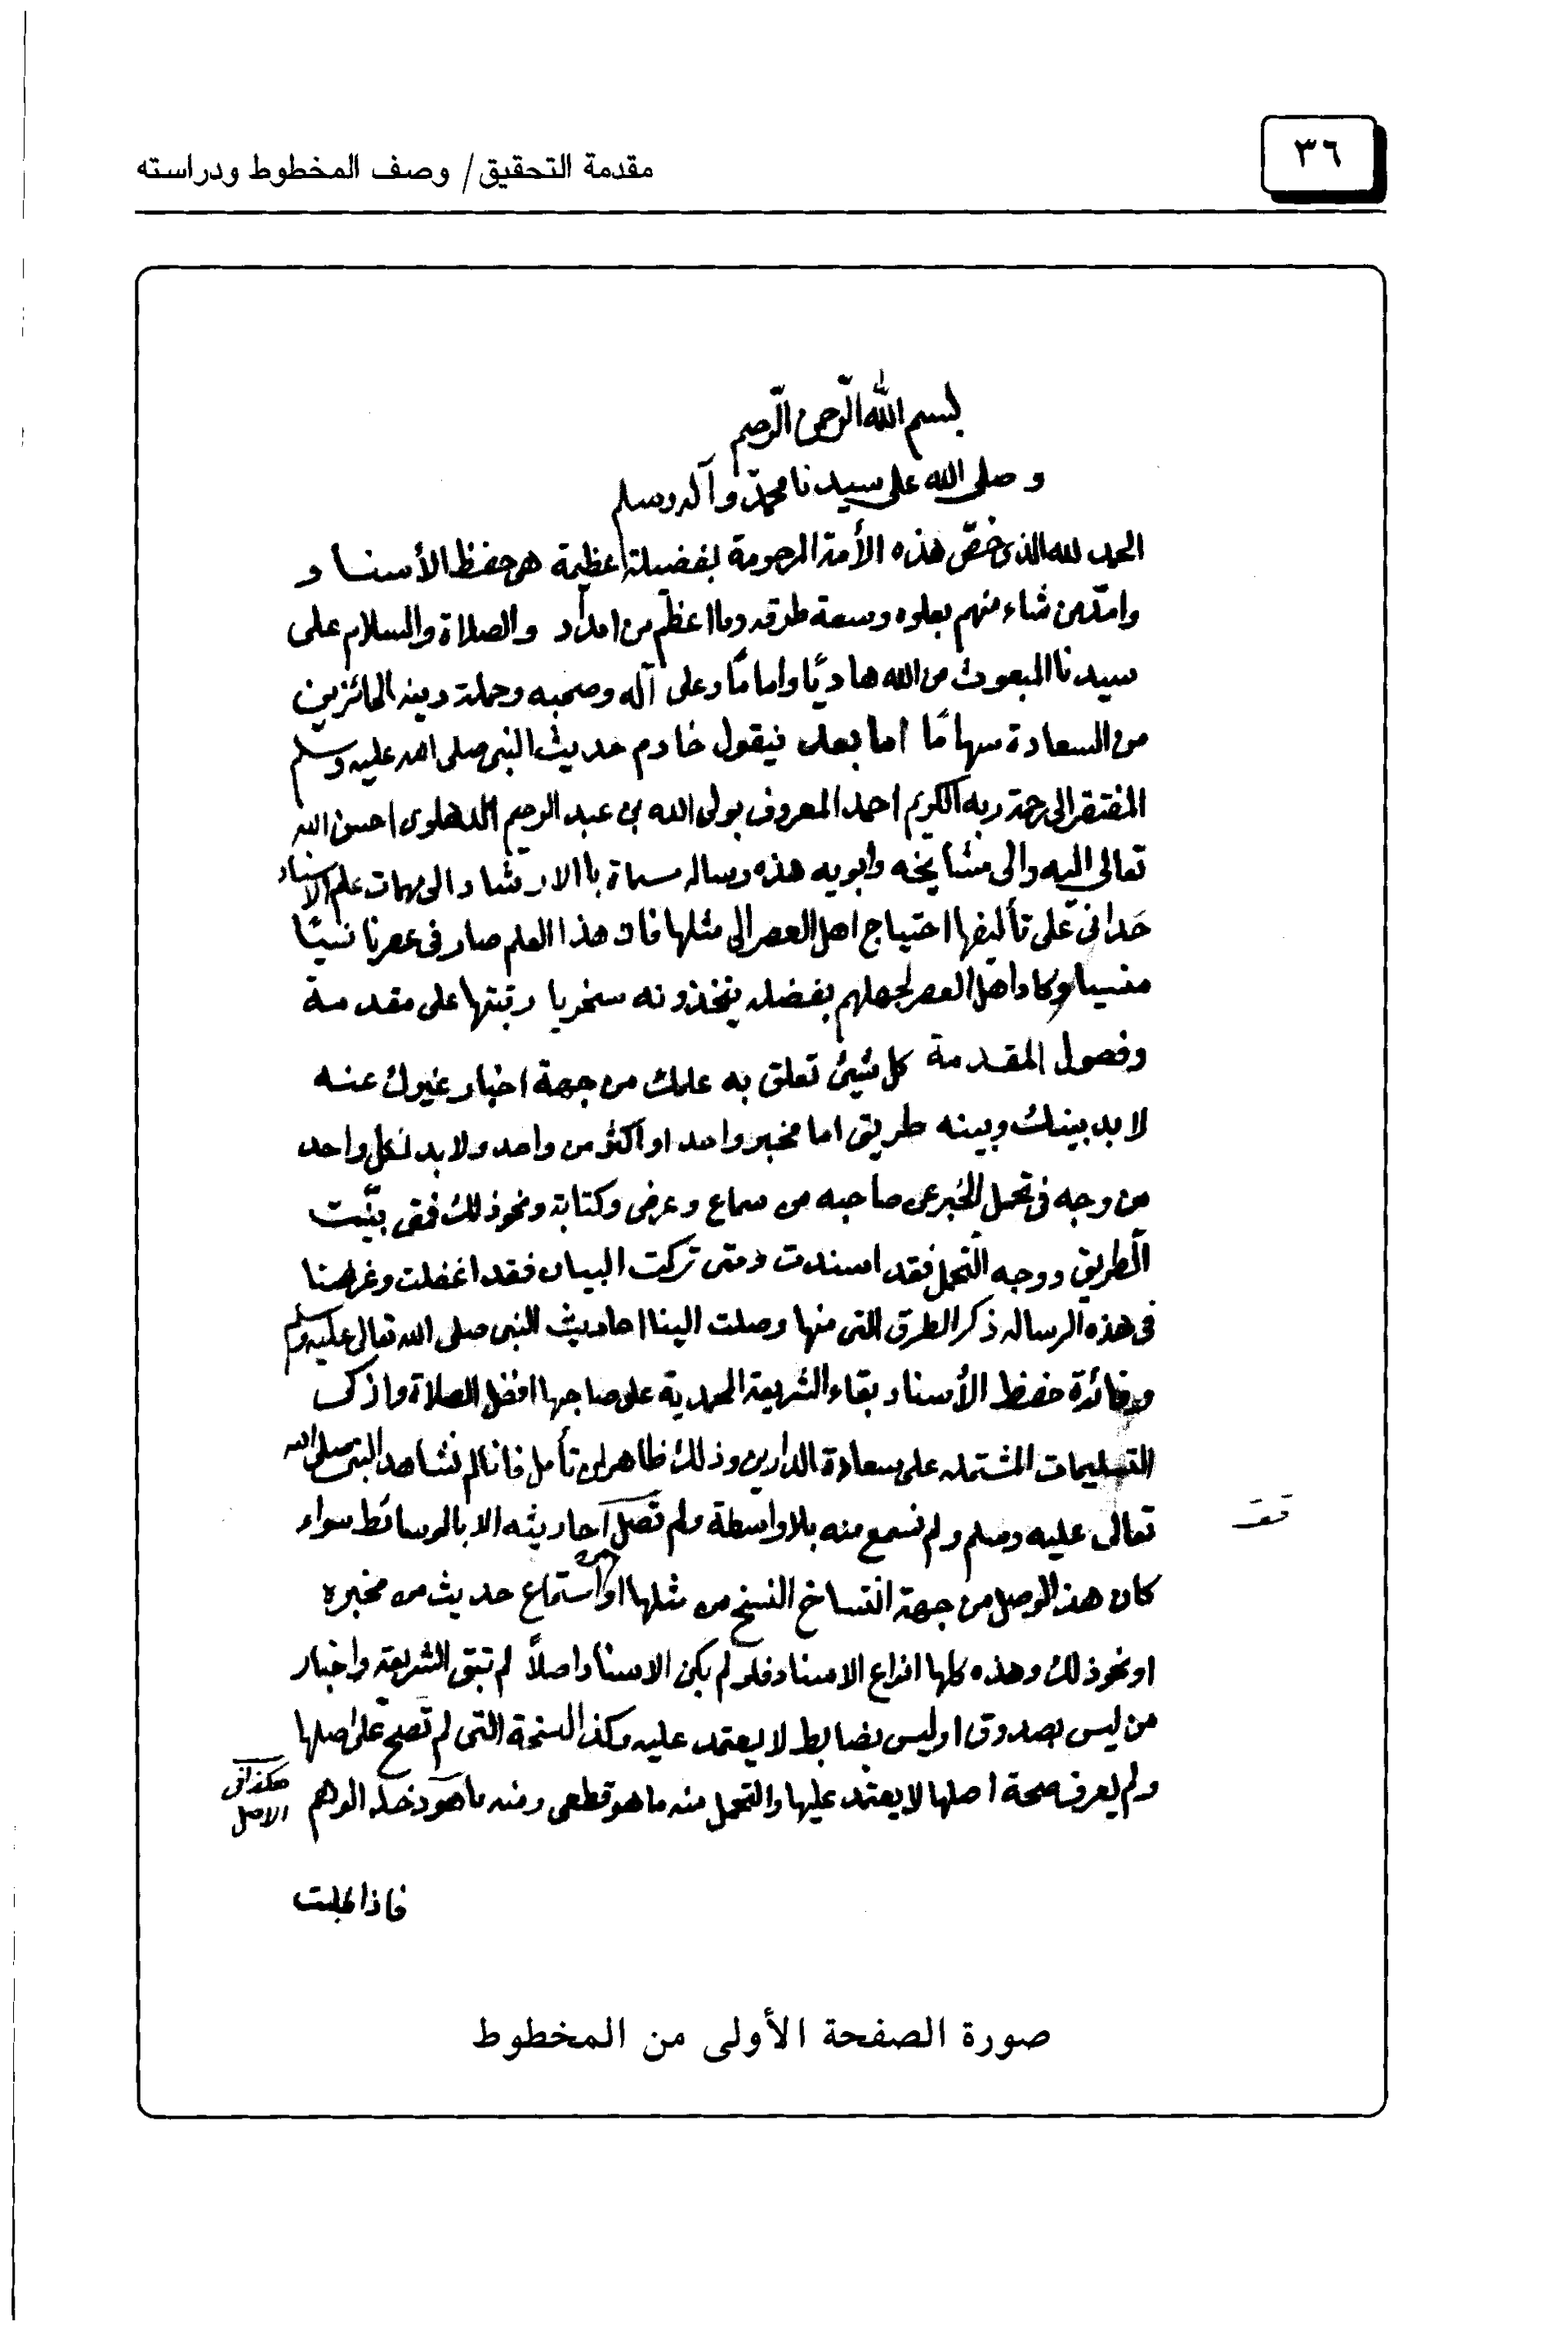 ٣٦
مقدمة التحقيق/ وصف المخطوط ودراسته
بسم الله الرّحمن الرّحيم
و صلى الله على سيدنا محمدّ وآله وسلم
الحمد لله الذى خصّ هذه الأمة المرحومة بفضيلة عظيمة هى حفظ الأسناد
وامدّ من شاء منهم بعلوه وسعة طرقه وما اعظم من امداد والصلاة والسلام على
سيدنا المبعوث من الله هاديًا واماماً وعلى آله وصحبه وحملة دينه الحائزين
من السعادة سهامًا اما بعد فيقول خادم حديث النبى صلى الله عليه وسلم
المفتقر الى رحمة ربه الكريم احمد المعروف بولى الله بن عبد الرحيم الدهلوى احسن الله
تعالى اليه والى مشايخه وابويه هذه رساله مسماة باالارشاد الى مهمات علم الاسناد
حَدانى على تأليفها احتياج اهل العصر الى مثلها فان هذا العلم صار فى عصرنا نسيًا
منسيا وكاد اهل العصر لجهلهم بفضله يتخذونه سخريا رتبتها على مقدمة
وفصول المقدمة كل شيئ تعلق به علمك من جهة اخبار غيرك عنه
لا بد بينك وبينه طريق اما مخبر واحد او اكثر من واحد ولا بد لكل واحد
من وجه فى تحمل الخبر عن صاحبه من سماع وعرض وكتابة ونحو ذلك فمتى بيّنت
الطريق ووجه التّحمل فقد اسندت ومتى تركت البيان فقد اغفلت وغرضنا
فى هذه الرساله ذكر الطرق التى منها وصلت الينا احاديث النبى صلى الله تعالى عليه وسلم
وفائدة حفظ الأسناد بقاء الشريعة المحمدية على صاحبها افضل الصلاة واذكى
التسليمات المشتمله على سعادة الدارين وذلك ظاهر لمن تأمل فانا لم نشاهد النبى صلى الله
تعالى عليه وسلم ولم نسمع منه بلا واسطة ولم تصل احاديثه الا بالوسائط سواء
كان هذ الوصل من جهة انتساخ النسخ من مثلها او استماع حديث من مخبره
او نحو ذلك وهذه كلها انواع الاسناد فلو لم يكن الاسناد اصلاً لم تبق الشريعة واخبار
من ليس بصدوق او ليس بضابط لا يعتمد عليه وكذا النسخة التى لم تصح على اصلها
ولم يعرف صحة اصلها لا يعتمد عليها والتحمل منه ما هو قطعى ومنه ما هو دخله الوهم
هكذا فى
الاصل
صورة الصفحة الأولى من المخطوط